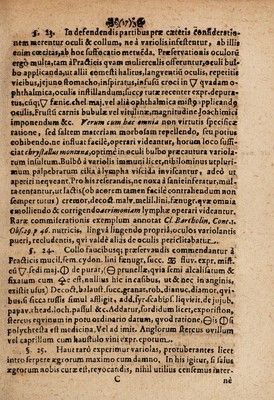 §. 23. In defendendis partibus præ cæteris consideratio-
nem merentur oculi & collum, ne à variolis infestentur, ab illis
enim cœcitas, ab hoc suffocatio metuêda. Præservationis oculorũ
ergò multa, tam à Practicis quam mulierculis offeruntur, oculi bul-
bo applicanda, ut allii comesti halitus, langventis oculi, repetitis
vicibus, jejuno stomacho, inspiratus, infusũ croci in quadam o-
phthalmica, oculis instillandum, panis albus recenter expr. depura-
tus, cũq; fœnic. chel. maj. vel aliâ ophthalmica misto applicando
oculis, Frustũ carnis bubulæ vel vitulinæ, magnitudine Joachimici
imponendum &c. Verum cum hæc omnia non virtutis specificæ
ratione, sed saltem materiam morbosam repellendo, seu potius
cohibendo, ne influat facilè, operari videantur, horum loco suffi-
ciat chrystallus montana, optimè in oculi bulbo præcautura variola-
rum insultum. Bulbõ à variolis immuni licet, nihilominus utplurì-
mum palpebrarum cilia à lympha viscida inviscantur, adeò ut
aperiri neqveant. Pro his reserandis, ne noxa à sanie inferatur, mul-
ta centantur, ut lactis (ob acorem tamen facilè contrahendum non
semper tutus) cremor, decoct. malv. melil. lini, fœnugr. &c. quæ omnia
emolliendo & corrigendo acrimoniam lymphæ operari videantur.
Raræ commiserationis exemplum annotat Cl. Bartholin, Cent. 2.
Obs. 19. p. 46. nutricis, lingvâ lingendo propriâ, oculos variolantis
pueri, recludentis, qui valdè aliàs de oculis periclitabatur.
§. 24. Collo faucibusq; præservandis commendantur à
Practicis mucil. sem. cydon. lini fœnugr. succ.
fixatum cum est, nullus hîc in caucibus, ut & nec in anginis,
existit usus) Decoct. balaust. succ. granat. rob. dianuc, diamor, qvi-
bus, si sicca tussis simul affligit, add. syr. scabios. liqvirit. de jujub.
papav. rhoead. loch. passul. &c. Addatur, sordidum licet, expositum,
stercus eqvinum in potu ordinario datum, quod ratione, si
polychresta est medicina. Vel ad imit. Anglorum stercus ovillum
vel caprillum cum haustulo vini expr. eporum.
§. 25. Haut rarò experimur variolas, protuberantes licet
intro serpere ægrorum maximo cum damno. In his igitur, si salus
ægrorum nobis curæ est, reyocandis, nihil utilius censemus inter-
C
nè